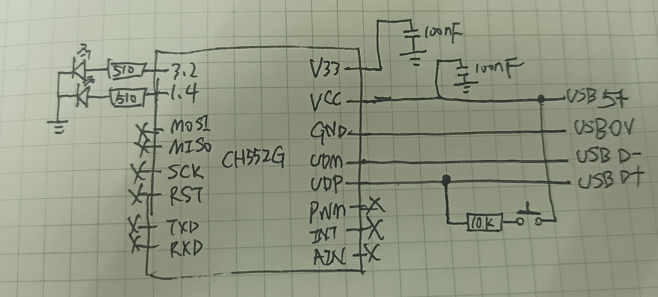 100nF
100nF
510
3.2
510
1.4
MOSI
MISO
SCK
RST
TXD
RXD
CH552G
V33
VCC
GND
UDM
UDP
PWM
INT
AIN
USB 5+
USB 0V
USB D-
USB D+
10k